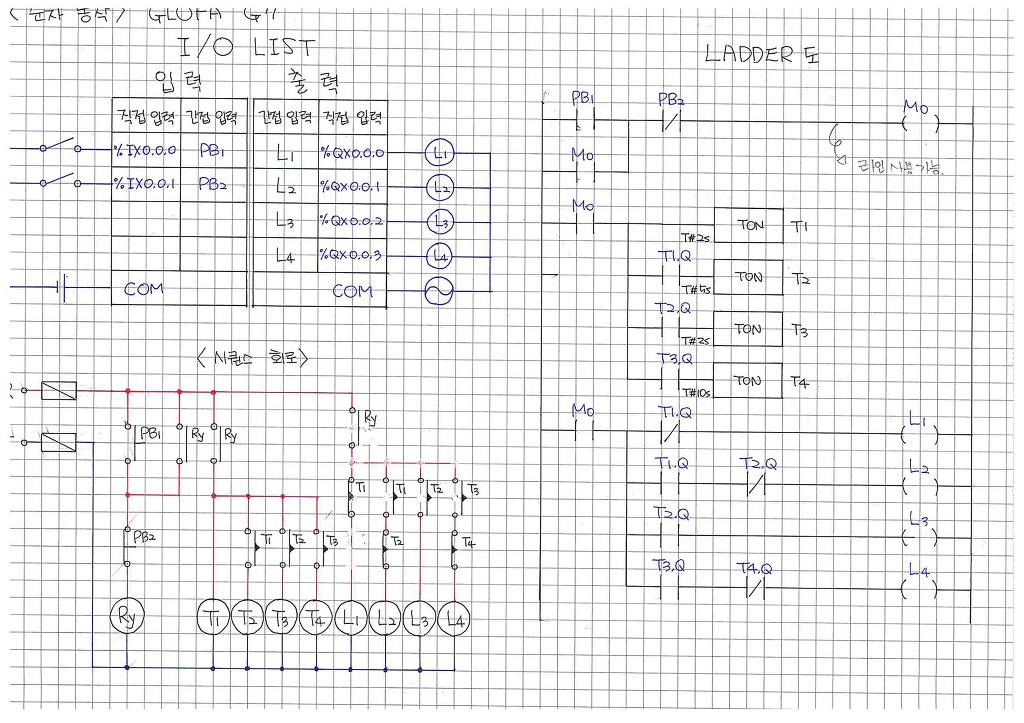 <순차 동작> GLOFA G11
I/O LIST
입력 출력
직접 입력 간접 입력 간접 입력 직접 입력
%IX0.0.0 PB1 L1 %QX0.0.0 L1
%IX0.0.1 PB2 L2 %QX0.0.1 L2
L3 %QX0.0.2 L3
L4 %QX0.0.3 L4
COM COM
<시퀀스 회로>
Ry
PB1 Ry Ry
T1 T1 T2 T3
PB2 T1 T2 T3 T2 T4
Ry T1 T2 T3 T4 L1 L2 L3 L4
LADDER 도
PB1 PB2 M0
M0
라인 사용 가능.
M0
TON T1
T#2s
T1.Q
TON T2
T#5s
T2.Q
TON T3
T#2s
T3.Q
TON T4
T#10s
M0 T1.Q L1
T1.Q T2.Q L2
T2.Q L3
T3.Q T4.Q L4